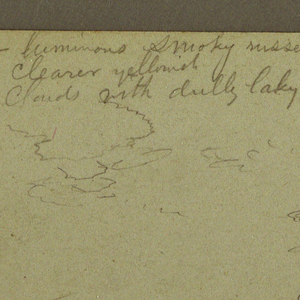 - luminous smoky russe
clearer yellowish
clouds with dully laky